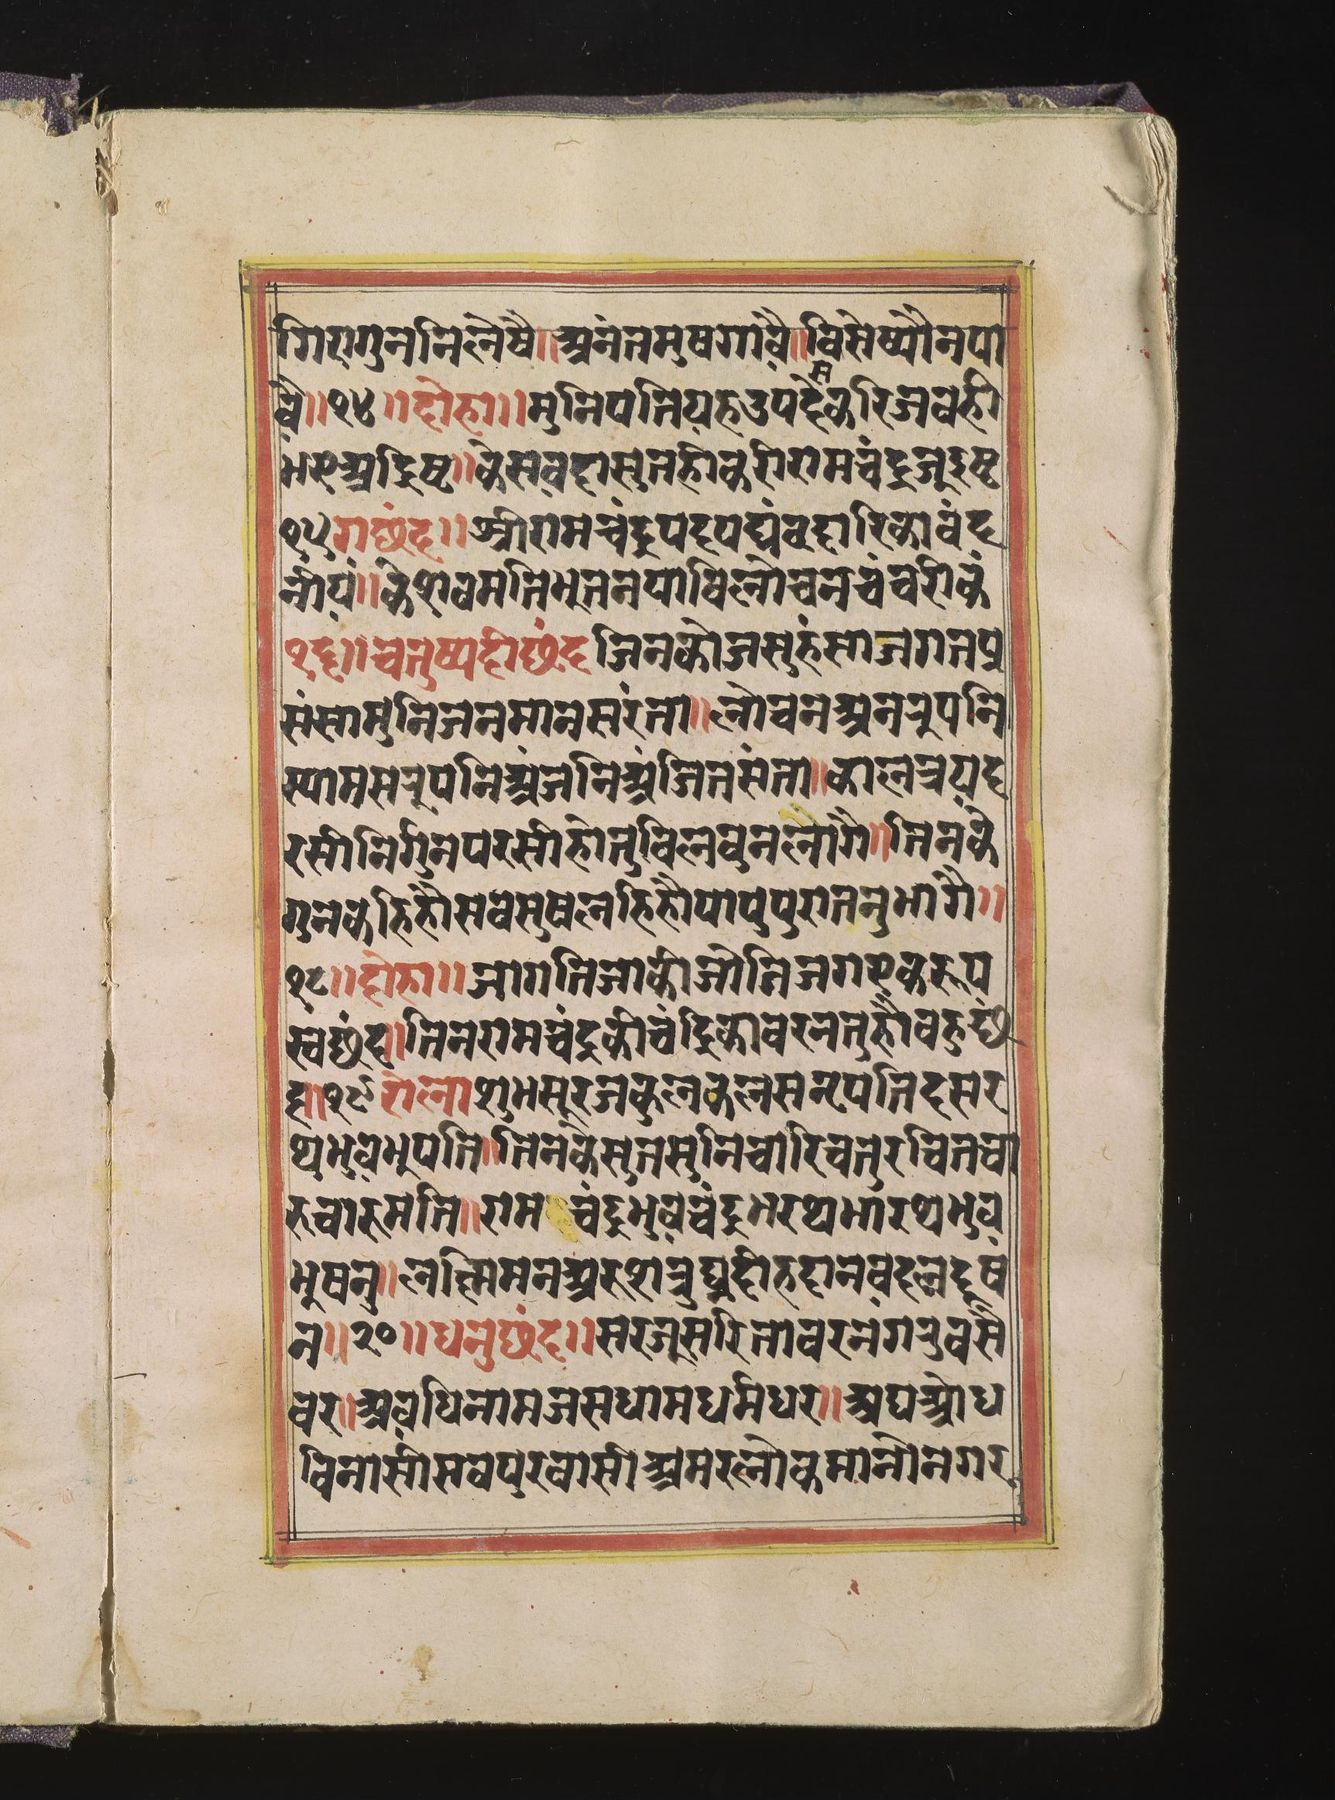 गिरागुननिलेषै॥अनंतमुषगावै॥विसेष्यौनपा
वै॥१४॥दोहा॥मुनिपतियहउपदेसकरिजबही
भएअद्रिष्ट॥केसवदासुतहीकरीरामचंद्रजूइष्ट
१५गछंद॥श्रीरामचंद्रपदपद्मंवदारिकावंद
नीयं॥केशवमतिभूतनयाविलोचनचंचरीकं
१६॥चतुष्पदीछंदजिनकोजसुहंसाजगतप्र
संसामुनिजनमानसरंता॥लोचनअनरूपनि
स्यामसरूपनिअंजनिअंजितसंता॥कालत्रयद
रसीनिर्गुनपरसीहोतुविलवुनलागै॥तिनके
गुनकहिहौसबसुषलहिहौपापुपुरातनुभागै॥
१८॥दोहा॥जागतिजाकीजोतिजगएकरूप
स्वछंद॥तिनरामचंद्रकीचंद्रिकावरनतुहौबहुछं
द॥१९रोलाशुभसूरजकुलकलसनृपतिदसर
थभुवभूपति॥तिनकेसुतसुनिचारिचतुरचितचा
रुचारुमति॥रामचंद्रभुवचंद्रभरथभारथभुव
भूषनु॥लछिमनअरुशत्रुघ्नदीहदानवदलदूष
न॥२०॥धनुछंद॥सरजूसरितावरनगरुबसै
वर॥अवधिनामजसधामधर्मधर॥अघओध
विनासीसबपुरवासीअमरलोकमानौनगर